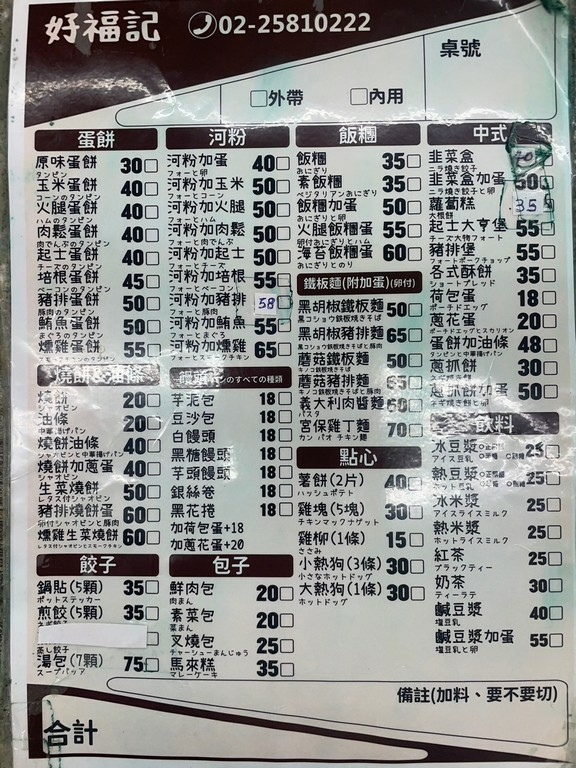 好福記 02-25810222
桌號
□外帶 □內用
蛋餅
原味蛋餅 30□
タンピン
玉米蛋餅 40□
コーンのタンピン
火腿蛋餅 40□
ハムのタンピン
肉鬆蛋餅 40□
肉でんぶのタンピン
起士蛋餅 40□
チーズのタンピン
培根蛋餅 45□
ベーコンのタンピン
豬排蛋餅 50□
豚肉のタンピン
鮪魚蛋餅 50□
まぐろのタンピン
燻雞蛋餅 55□
スモークチキンのタンピン
燒餅&油條
燒餅 20□
シャオピン
油條 20□
中華揚げパン
燒餅油條 40□
シャオピンと中華揚げパン
燒餅加蔥蛋 40□
シャオピン
生菜燒餅 50□
レタス付シャオピン
豬排燒餅蛋 60□
卵付シャオピンと豚肉
燻雞生菜燒餅 60□
レタス付シャオピンとスモークチキン
餃子
鍋貼(5顆) 35□
ポットステッカー
煎餃(5顆) 35□
蒸し餃子
湯包(7顆) 75□
スープパッア
河粉
河粉加蛋 40□
フォーと卵
河粉加玉米 50□
フォーとコーン
河粉加火腿 50□
フォーとハム
河粉加肉鬆 50□
フォーと肉でんぶ
河粉加起士 50□
フォーとチーズ
河粉加培根 55□
フォーとベーコン
河粉加豬排 58□
フォーと豚肉
河粉加鮪魚 55□
フォーとまぐろ
河粉加燻雞 65□
フォーとスモークチキン
饅頭 のすべての種類
芋泥包 18□
豆沙包 18□
白饅頭 18□
黑糖饅頭 18□
芋頭饅頭 18□
銀絲卷 18□
黑花捲 18□
加荷包蛋+18
加蔥花蛋+20
包子
鮮肉包 20□
肉まん
素菜包 20□
菜まん
叉燒包 25□
チャーシューまんじゅう
馬來糕 35□
マレーケーキ
飯糰
飯糰 35□
おにぎり
素飯糰 35□
ベジタリアンおにぎり
飯糰加蛋 50□
おにぎりと卵
火腿飯糰蛋 55□
卵付おにぎりとハム
海苔飯糰蛋 60□
おにぎりとのり
鐵板麵(附加蛋)(卵付)
黑胡椒鐵板麵 50□
黒コショウ鉄板焼きそば
黑胡椒豬排麵 65□
黒コショウ鉄板焼きそばと豚肉
蘑菇鐵板麵 50□
キノコ鉄板焼きそば
蘑菇豬排麵 65□
キノコ鉄板焼きそばと豚肉
義大利肉醬麵 60□
パスタ
宮保雞丁麵 70□
カン パオ チキン麵
點心
薯餅(2片) 40□
ハッシュポテト
雞塊(5塊) 30□
チキンマックナゲット
雞柳(1條) 15□
ささみ
小熱狗(3條) 30□
小さなホットドッグ
大熱狗(1條) 30□
ホットドッグ
中式
韭菜盒
ニラ焼き餃子
韭菜盒加蛋 50□
ニラ焼き餃子と卵
蘿蔔糕 35
大根餅
起士大亨堡 55□
チーズ大物フォート
豬排堡 55□
フォートポークチョップ
各式酥餅 35□
ショートブレッド
荷包蛋 18□
ポーチドエッグ
蔥花蛋 20□
ポーチドエッグとスカリオン
蛋餅加油條 48□
タンピンと中華揚げパン
蔥抓餅 30□
ネギ焼き餅
蔥抓餅加蛋 50□
ネギ焼き餅と卵
飲料
冰豆漿 25□
アイス豆乳
熱豆漿 25□
ホット豆乳
冰米漿 25□
アイスライスミルク
熱米漿 25□
ホットライスミルク
紅茶 25□
ブラックティー
奶茶 30□
ティーラテ
鹹豆漿 40□
塩豆乳
鹹豆漿加蛋 55□
塩豆乳と卵
備註(加料、要不要切)
合計